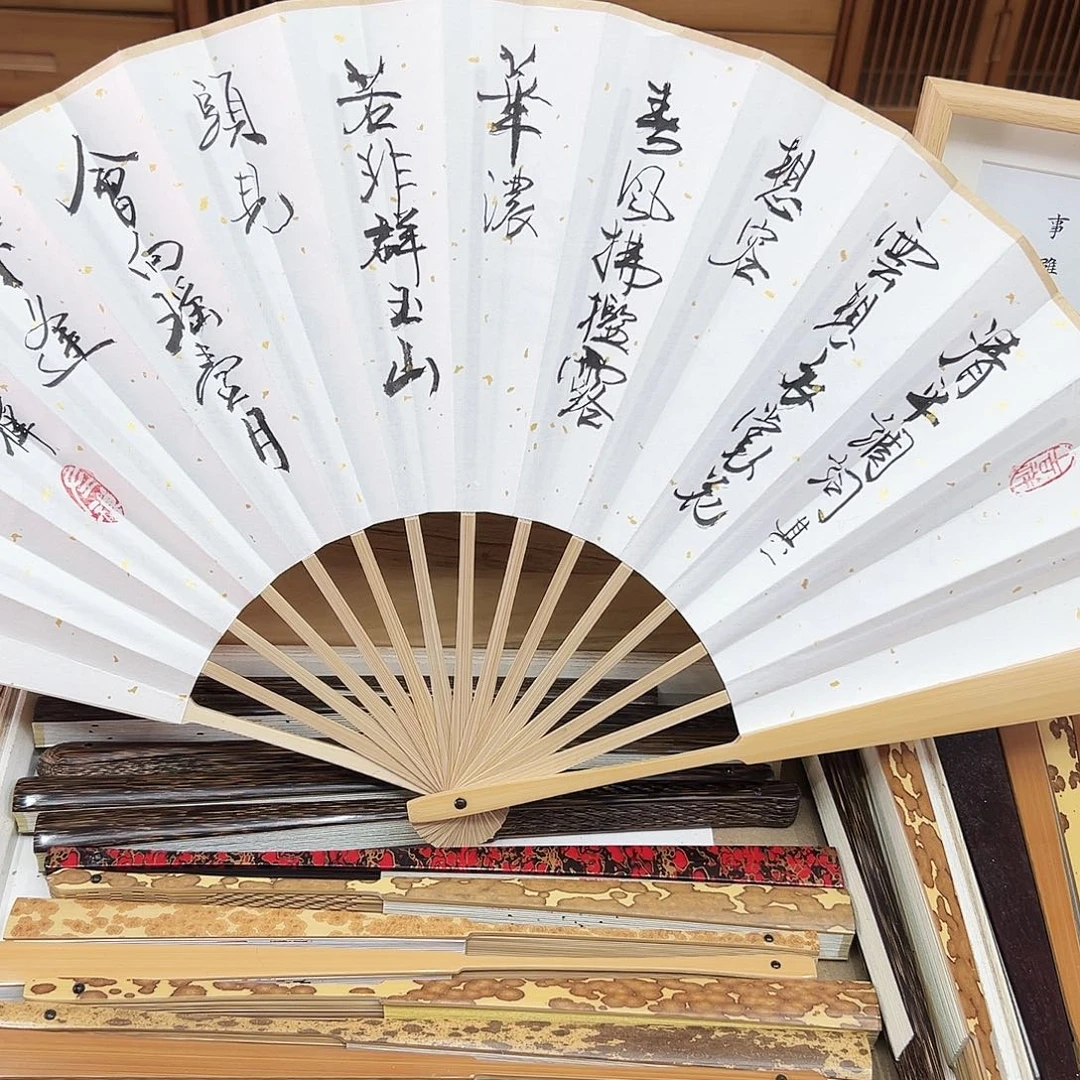 清平調詞 其一
雲想衣裳花
想容
春風拂檻露
華濃
若非群玉山
頭見
會向瑤臺月
逢
事